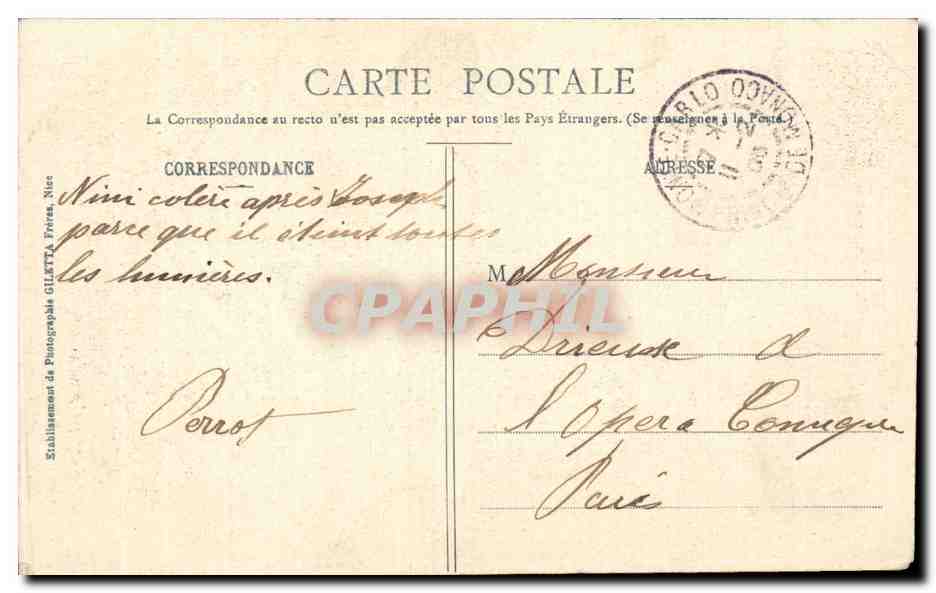 CARTE POSTALE
La Correspondance au recto n'est pas acceptée par tous les Pays Étrangers. (Se renseigner à la Poste
CORRESPONDANCE
Nini colère après Joseph
parce que il éteint toutes
les lumières.
Perrot
Etablissement de Photographie GILETTA Frères, Nice
ADRESSE
M Monsieur
Drieux
l'Opera Comique
Paris
MONTE-CARLO
DE MONACO
CPAPHIL